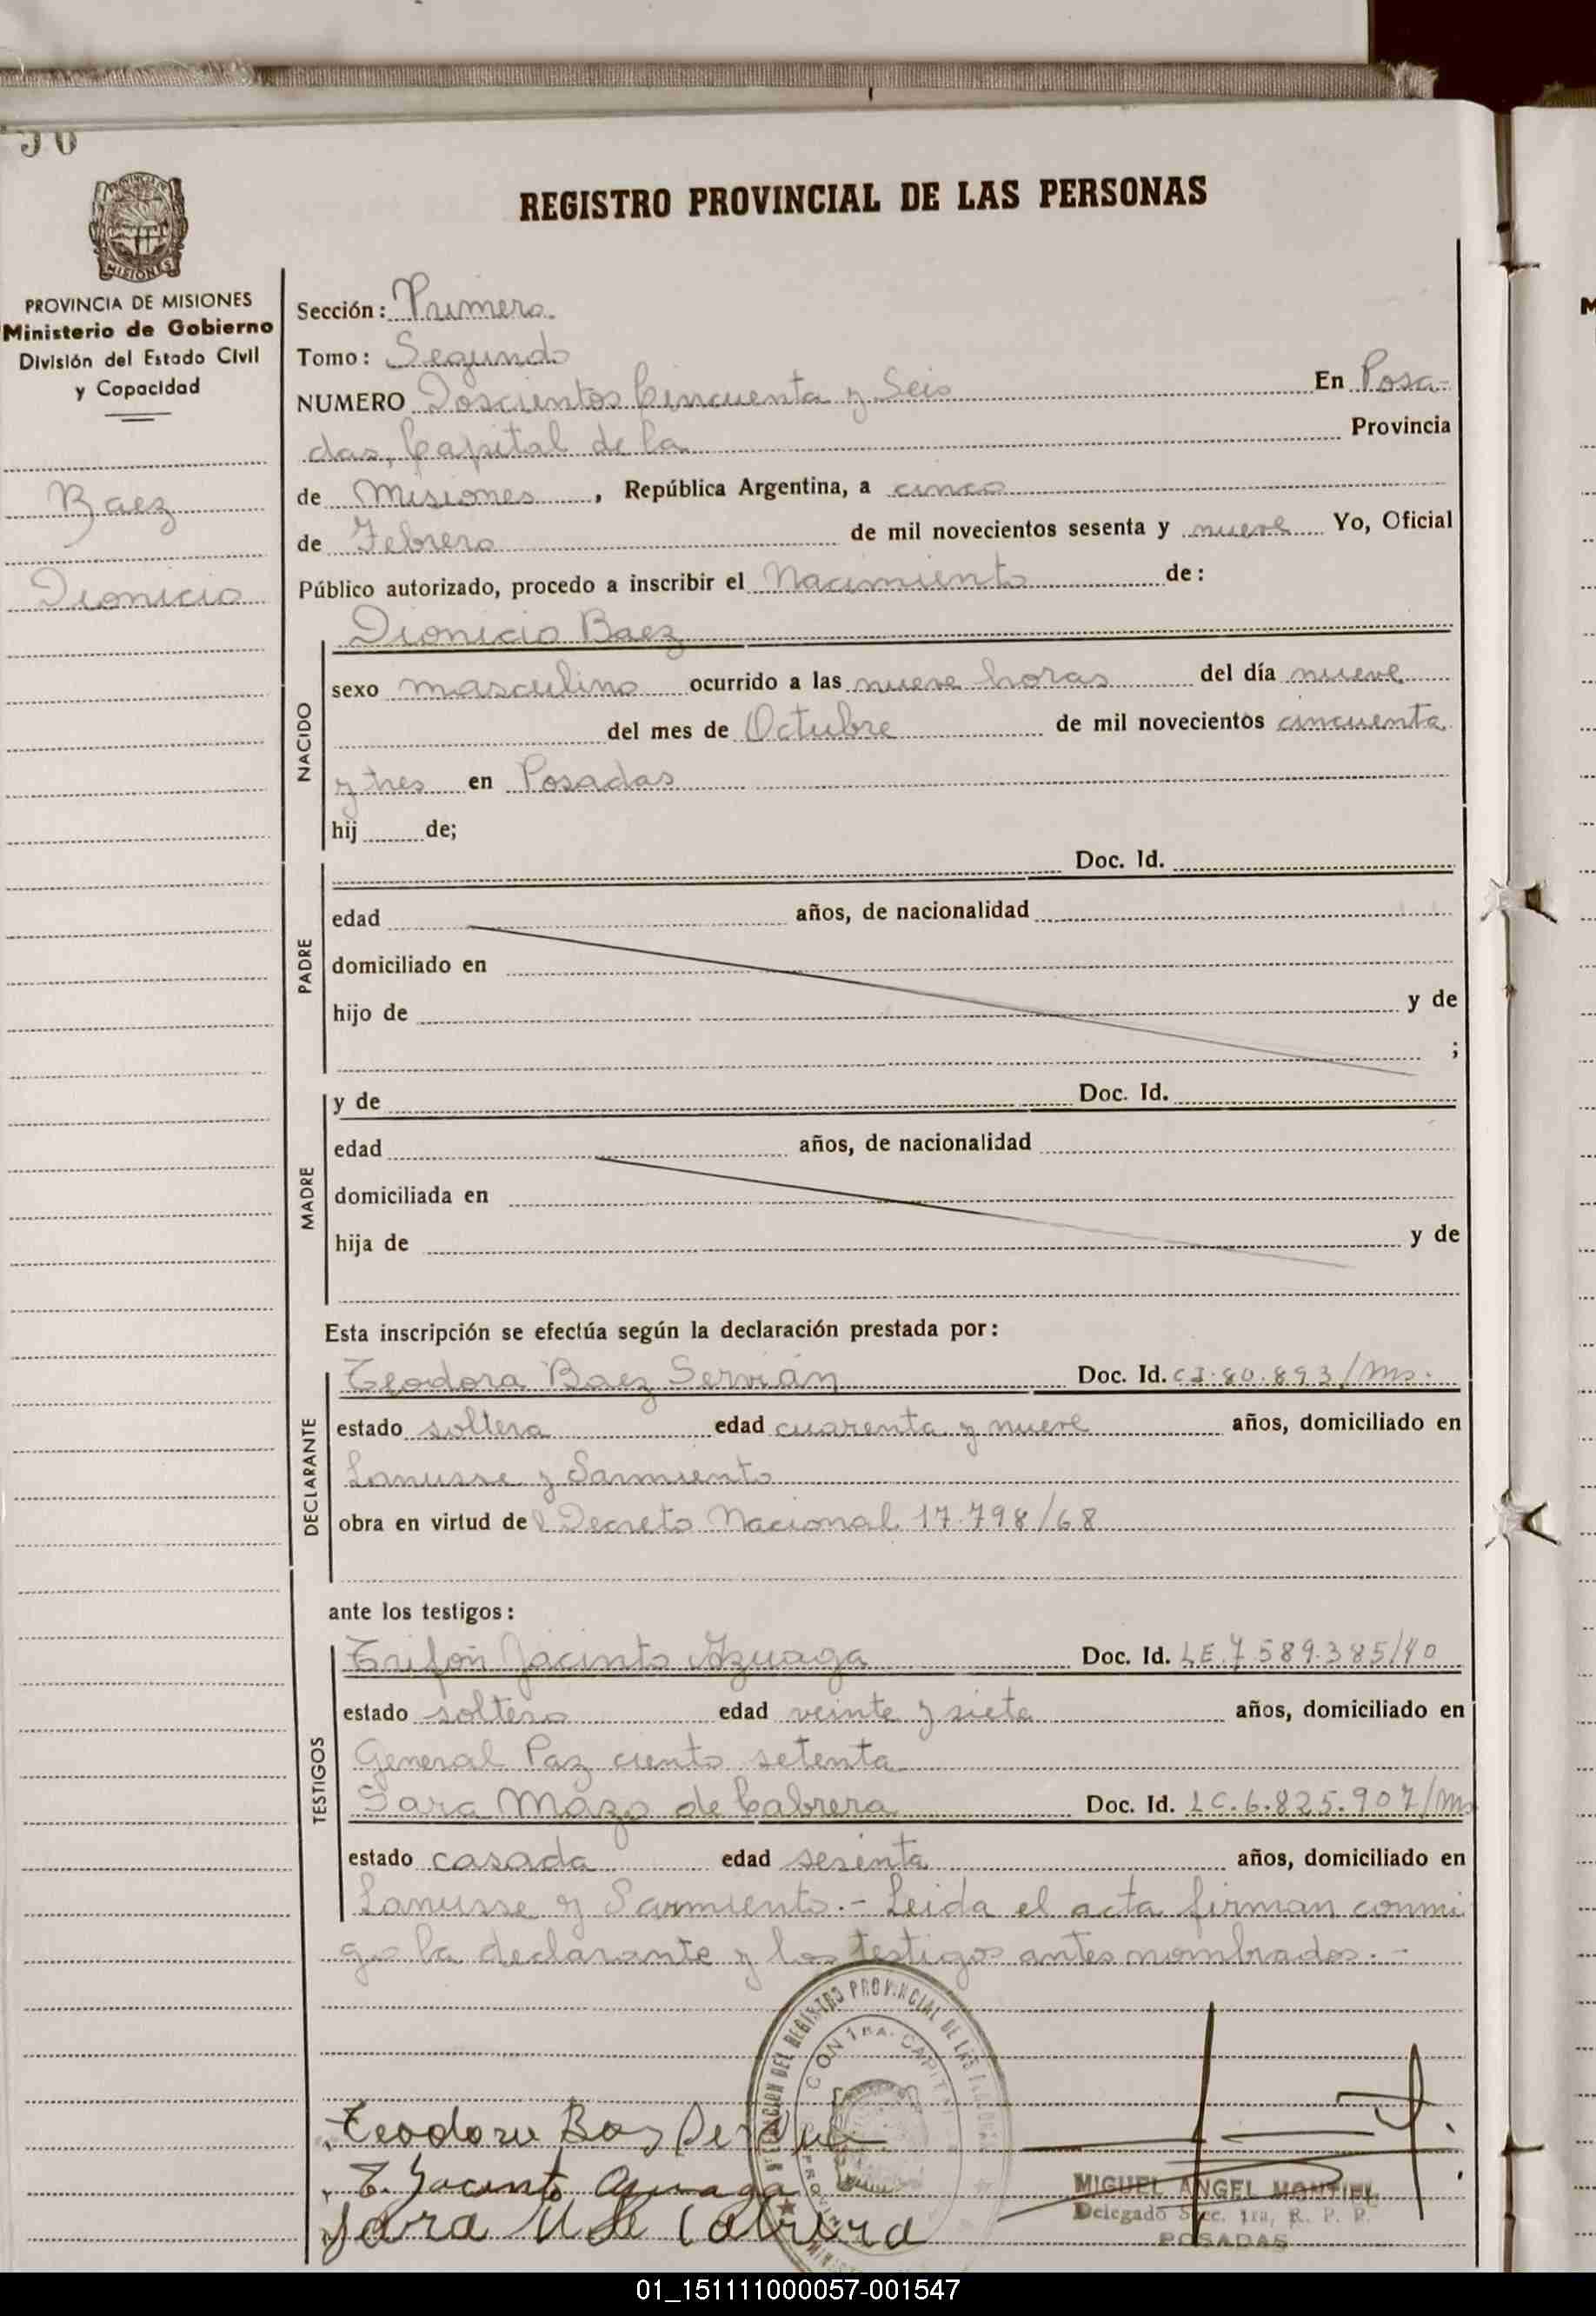 REGISTRO PROVINCIAL DE LAS PERSONAS
MISIONES
PROVINCIA DE MISIONES
Ministerio de Gobierno
División del Estado Civil
y Capacidad
Baez
Dionicio
Sección: Primera
Tomo: Segundo
NUMERO Doscientos Cincuenta y Seis En Posa-
das, Capital de la Provincia
de Misiones, República Argentina, a cinco
de Febrero de mil novecientos sesenta y nueve Yo, Oficial
Público autorizado, procedo a inscribir el Nacimiento de:
Dionicio Baez
NACIDO
sexo masculino ocurrido a las nueve horas del día nueve
del mes de Octubre de mil novecientos cincuenta
y tres en Posadas
hij de;
PADRE
Doc. Id.
edad años, de nacionalidad
domiciliado en
hijo de y de
;
MADRE
y de Doc. Id.
edad años, de nacionalidad
domiciliada en
hija de y de
Esta inscripción se efectúa según la declaración prestada por:
DECLARANTE
Teodora Baez Servián Doc. Id. CI.80.893/Ms.
estado soltera edad cuarenta y nueve años, domiciliado en
Lanusse y Sarmiento
obra en virtud del Decreto Nacional 17.798/68
ante los testigos:
TESTIGOS
Trifón Jacinto Azuaga Doc. Id. LE.7.589.385/40
estado soltero edad veinte y siete años, domiciliado en
General Paz ciento setenta
Sara Mazo de Cabrera Doc. Id. LC.6.825.907/Ms
estado casada edad sesenta años, domiciliado en
Lanusse y Sarmiento.- Leida el acta firman conmi
go la declarante y los testigos antes nombrados.-
REGISTRO PROVINCIAL DE LAS
Teodora Baez Servian
T. Jacinto Azuaga
Sara M de Cabrera
MIGUEL ANGEL MONTIEL
Delegado Secc. 1ra, R. P. P.
POSADAS
01_151111000057-001547